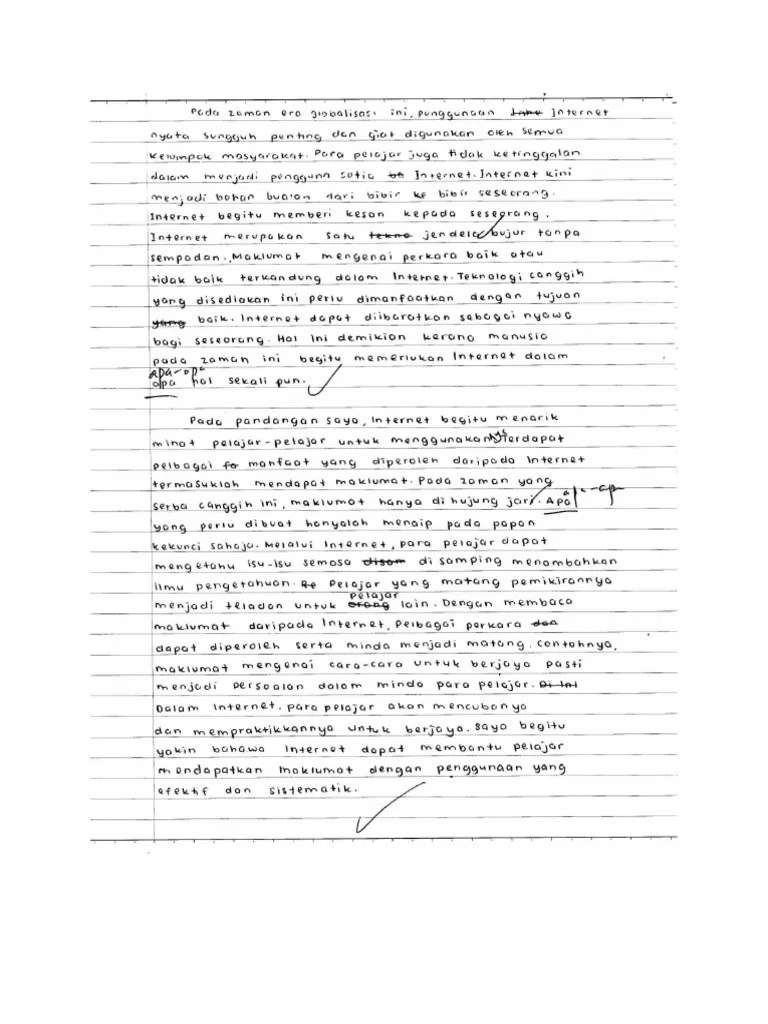 Pada zaman era globalisasi ini, penggunaan Internet
nyata sungguh penting dan giat digunakan oleh semua
kelompok masyarakat. Para pelajar juga tidak ketinggalan
dalam menjadi pengguna setia Internet. Internet kini
menjadi bahan bualan dari bibir ke bibir seseorang.
Internet begitu memberi kesan kepada seseorang.
Internet merupakan satu tekno jendela bujur tanpa
sempadan. Maklumat mengenai perkara baik atau
tidak baik terkandung dalam Internet. Teknologi canggih
yang disediakan ini perlu dimanfaatkan dengan tujuan
yang baik. Internet dapat diibaratkan sebagai nyawa
bagi seseorang. Hal ini demikian kerana manusia
pada zaman ini begitu memerlukan Internet dalam
apa-apa
apa hal sekali pun.
Pada pandangan saya, Internet begitu menarik
minat pelajar-pelajar untuk menggunakan Terdapat
pelbagai manfaat yang diperoleh daripada Internet
termasuklah mendapat maklumat. Pada zaman yang
serba canggih ini, maklumat hanya di hujung jari. Apa
yang perlu dibuat hanyalah menaip pada papan
kekunci sahaja. Melalui Internet, para pelajar dapat
mengetahu isu-isu semasa disam di samping menambahkan
ilmu pengetahuan. Pelajar yang matang pemikirannya
pelajar
menjadi teladan untuk orang lain. Dengan membaca
maklumat daripada Internet, pelbagai perkara dan
dapat diperoleh serta minda menjadi matang. Contohnya,
maklumat mengenai cara-cara untuk berjaya pasti
menjadi persoalan dalam minda para pelajar. Di Ini
Dalam Internet, para pelajar akan mencubanya
dan mempraktikkannya untuk berjaya. Saya begitu
yakin bahawa Internet dapat membantu pelajar
mendapatkan maklumat dengan penggunaan yang
efektif dan sistematik.